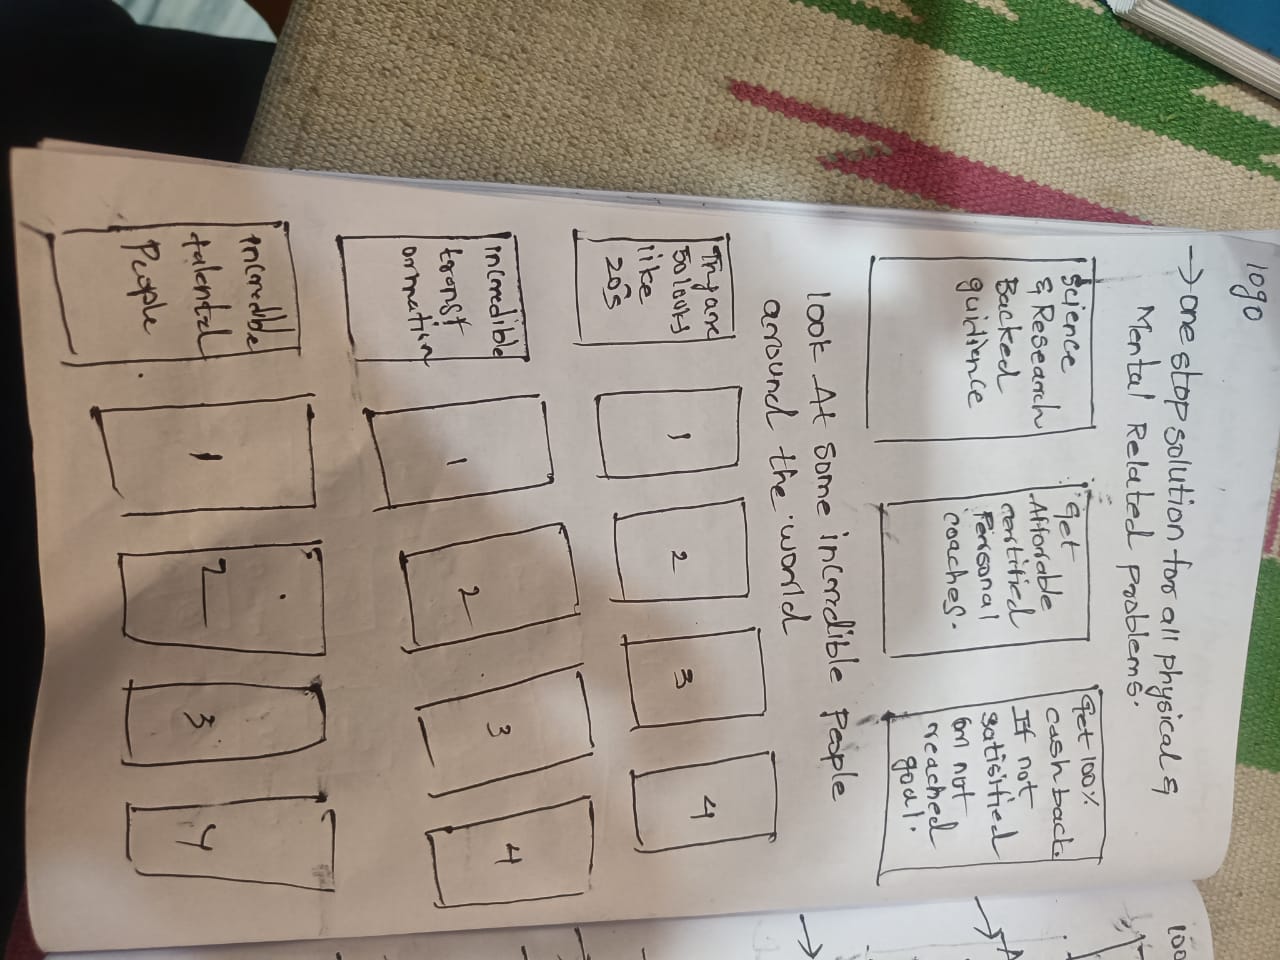 logo
→ one stop solution for all physical &
Mental Related Problems.
Science
& Research
Backed
guidience
Get
Afforable
certified
Personal
coaches.
Get 100%
cash back
If not
satisified
or not
reached
goal.
look At some incredible people
around the world
They are
50 looks
like
20's
1
2
3
4
incredible
transf
ormation
1
2
3
4
incredible
talented
People
1
2
3
4